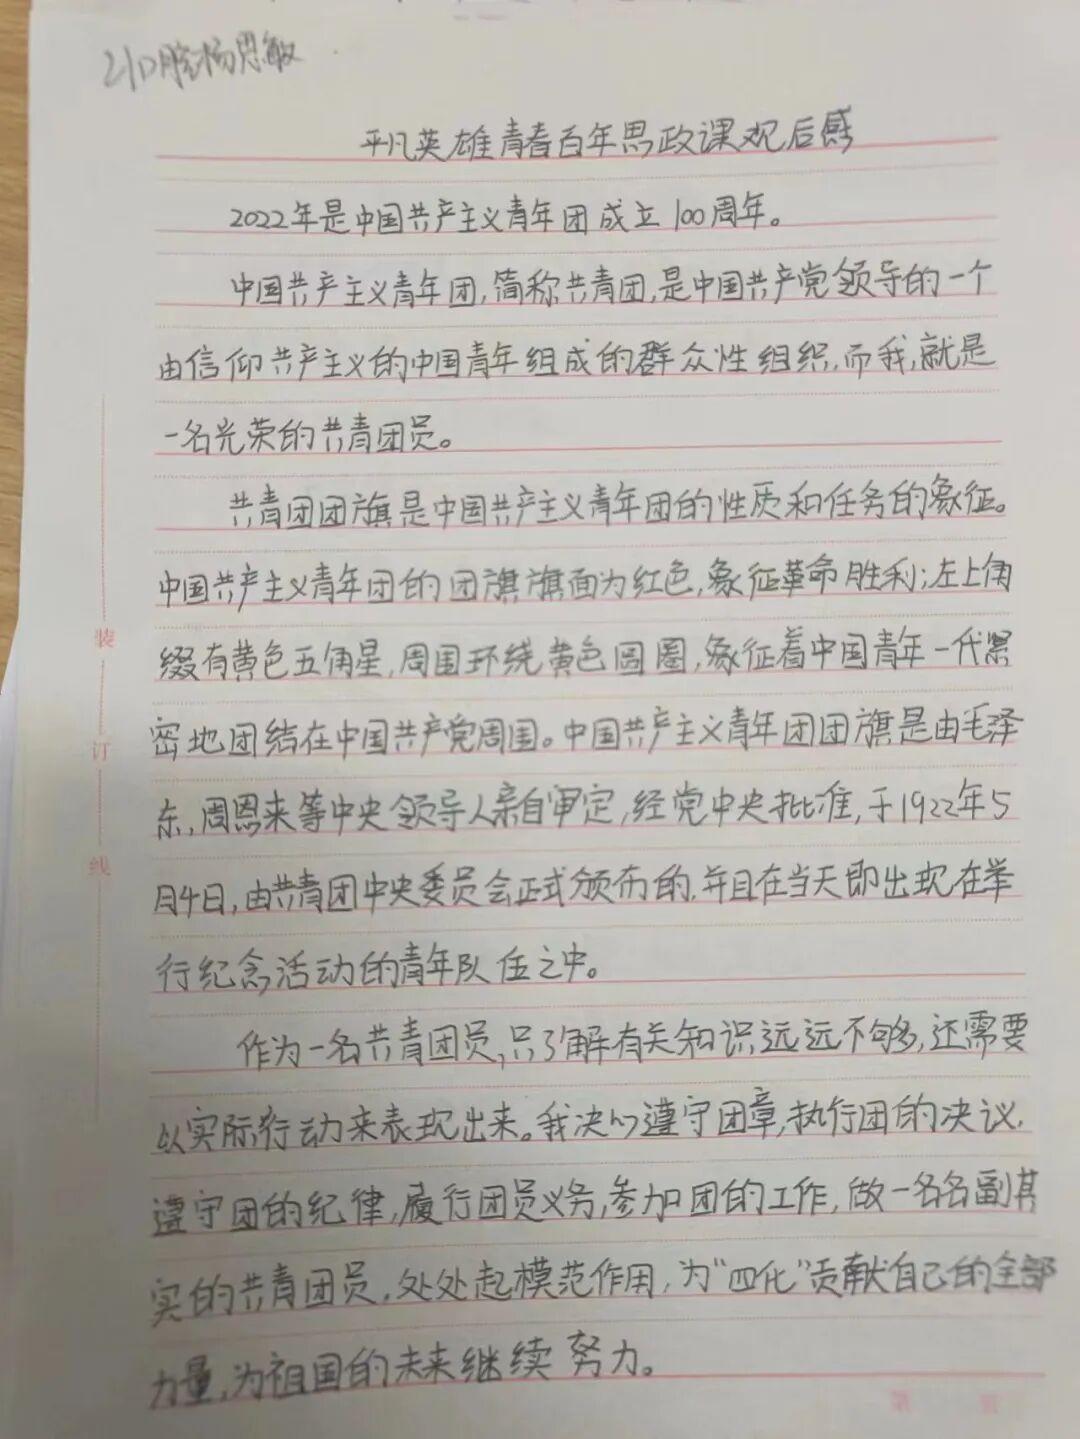 21口腔杨思敏
平凡英雄青春百年思政课观后感
2022年是中国共产主义青年团成立100周年。
中国共产主义青年团,简称共青团,是中国共产党领导的一个
由信仰共产主义的中国青年组成的群众性组织,而我,就是
一名光荣的共青团员。
共青团团旗是中国共产主义青年团的性质和任务的象征。
中国共产主义青年团的团旗旗面为红色,象征革命胜利;左上角
缀有黄色五角星,周围环绕黄色圆圈,象征着中国青年一代紧
密地团结在中国共产党周围。中国共产主义青年团团旗是由毛泽
东,周恩来等中央领导人亲自审定,经党中央批准,于1922年5
月4日,由共青团中央委员会正式颁布的,并且在当天即出现在举
行纪念活动的青年队伍之中。
作为一名共青团员,只了解有关知识远远不够,还需要
以实际行动来表现出来。我决心遵守团章,执行团的决议,
遵守团的纪律,履行团员义务,参加团的工作,做一名名副其
实的共青团员,处处起模范作用,为"四化"贡献自己的全部
力量,为祖国的未来继续努力。
装
订
线
第 页